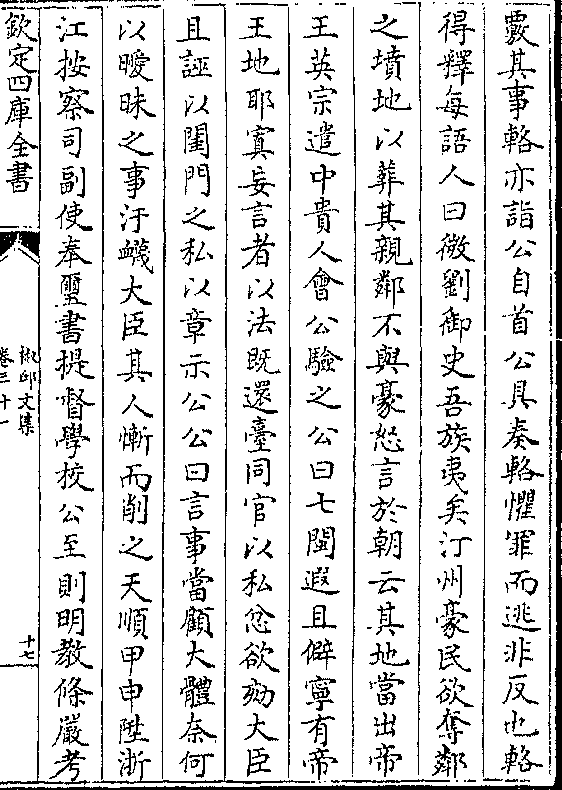 覈其事輅亦詣公自首公具奏輅懼罪而逃非反也輅
得釋每語人曰微劉御史吾族夷矣汀州豪民欲奪鄰
之墳地以葬其親鄰不與豪怒言於朝云其地當出帝
王英宗遣中貴人會公驗之公曰七閩遐且僻寧有帝
王地耶寘妄言者以法既還臺同官以私忿欲劾大臣
且誣以閨門之私以章示公公曰言事當顧大體奈何
以曖昧之事汙衊大臣其人慚而削之天順甲申陞浙
江按察司副使奉璽書提督學校公至則明教條嚴考
欽定四庫全書
椒邱文集
卷三十一
十七